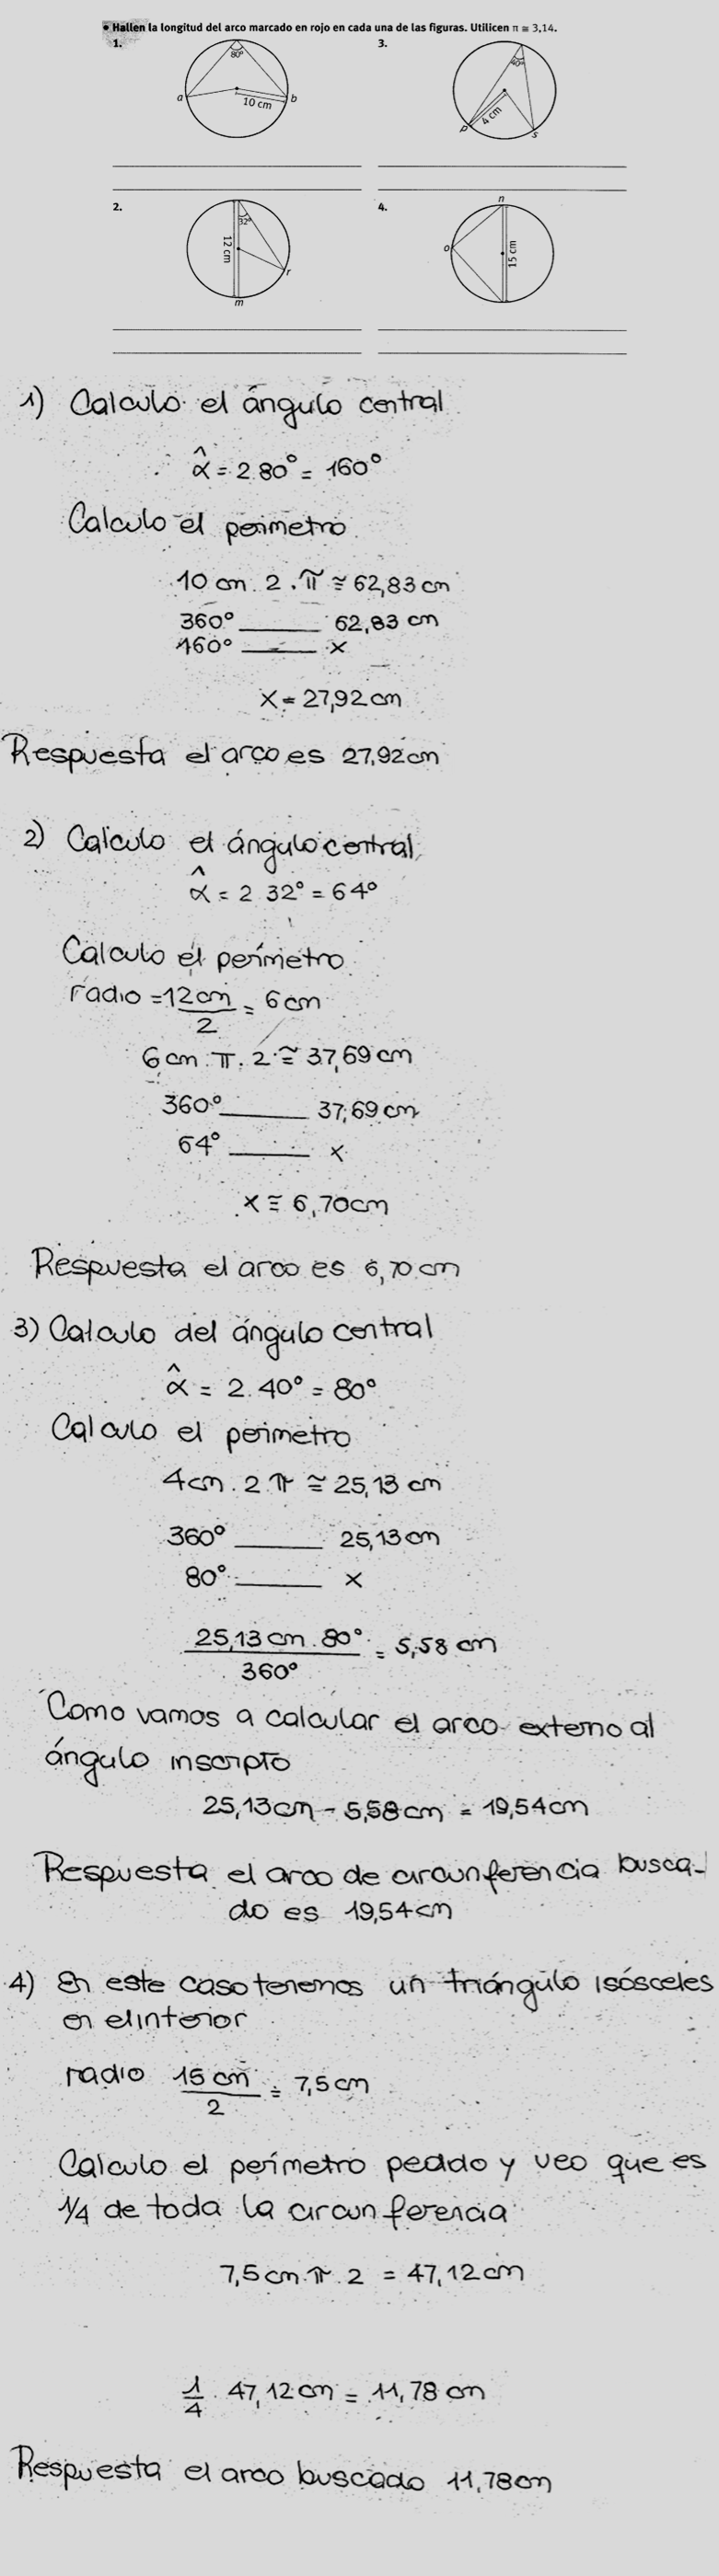 • Hallen la longitud del arco marcado en rojo en cada una de las figuras. Utilicen π ≅ 3,14.
1.
80°
a
b
10 cm
3.
40°
4 cm
p
s
2.
32°
12 cm
r
m
4.
n
o
15 cm
1) Calculo el ángulo central
α̂ = 2.80° = 160°
Calculo el perimetro
10 cm. 2 . π ≅ 62,83 cm
360° ____ 62,83 cm
160° ____ x
x = 27,92 cm
Respuesta el arco es 27,92cm
2) Calculo el ángulo central
α̂ = 2 32° = 64°
Calculo el perímetro
radio = 12cm/2 = 6 cm
6 cm. π. 2 ≅ 37,69 cm
360° ____ 37,69 cm
64° ____ x
x ≅ 6,70cm
Respuesta el arco es 6,70 cm
3) Calculo del ángulo central
α̂ = 2.40° = 80°
Calculo el perimetro
4cm. 2 π ≅ 25,13 cm
360° ____ 25,13 cm
80° ____ x
25,13 cm . 80°/360° = 5,58 cm
Como vamos a calcular el arco externo al
ángulo inscripto
25,13cm - 5,58cm = 19,54cm
Respuesta el arco de circunferencia busca-
do es 19,54cm
4) En este caso tenemos un triángulo isósceles
en el interior
radio 15 cm/2 = 7,5 cm
Calculo el perímetro pedido y veo que es
1/4 de toda la circunferencia
7,5 cm. π. 2 = 47,12 cm
1/4 . 47,12 cm = 11,78 cm
Respuesta el arco buscado 11,78cm